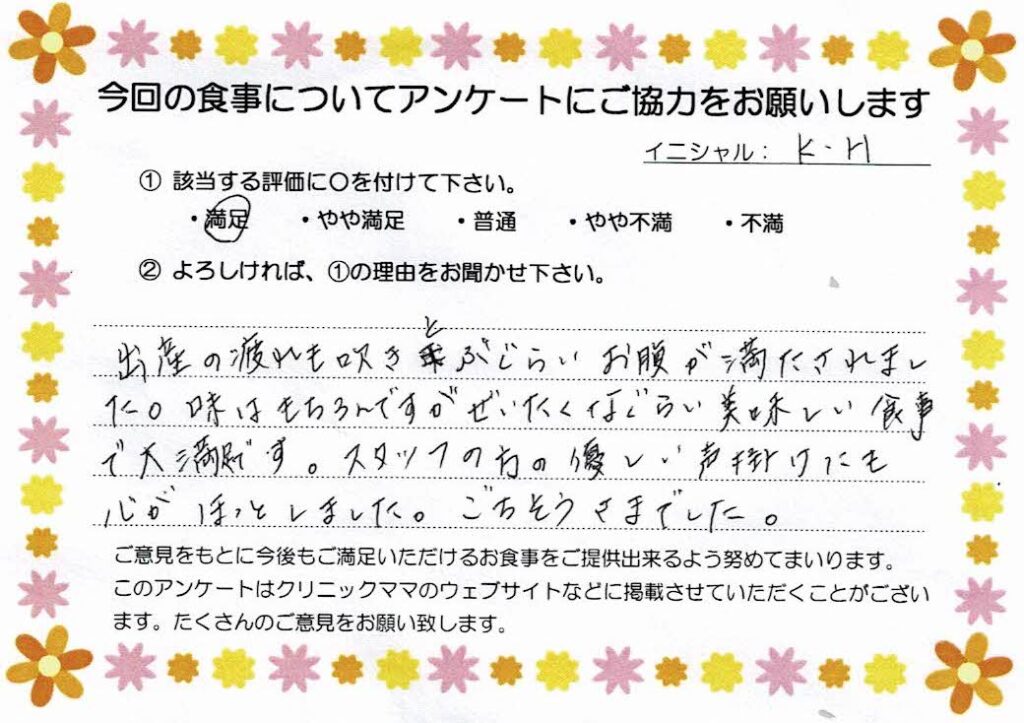 今回の食事についてアンケートにご協力をお願いします
イニシャル： K・H
① 該当する評価に〇を付けて下さい。
・満足 ・やや満足 ・普通 ・やや不満 ・不満
② よろしければ、①の理由をお聞かせ下さい。
出産の疲れも吹きとぶぐらいお腹が満たされまし
た。味はもちろんですがぜいたくなぐらい美味しい食事
で大満足です。スタッフの方の優しい声掛けにも
心がほっとしました。ごちそうさまでした。
ご意見をもとに今後もご満足いただけるお食事をご提供出来るよう努めてまいります。
このアンケートはクリニックママのウェブサイトなどに掲載させていただくことがござい
ます。たくさんのご意見をお願い致します。